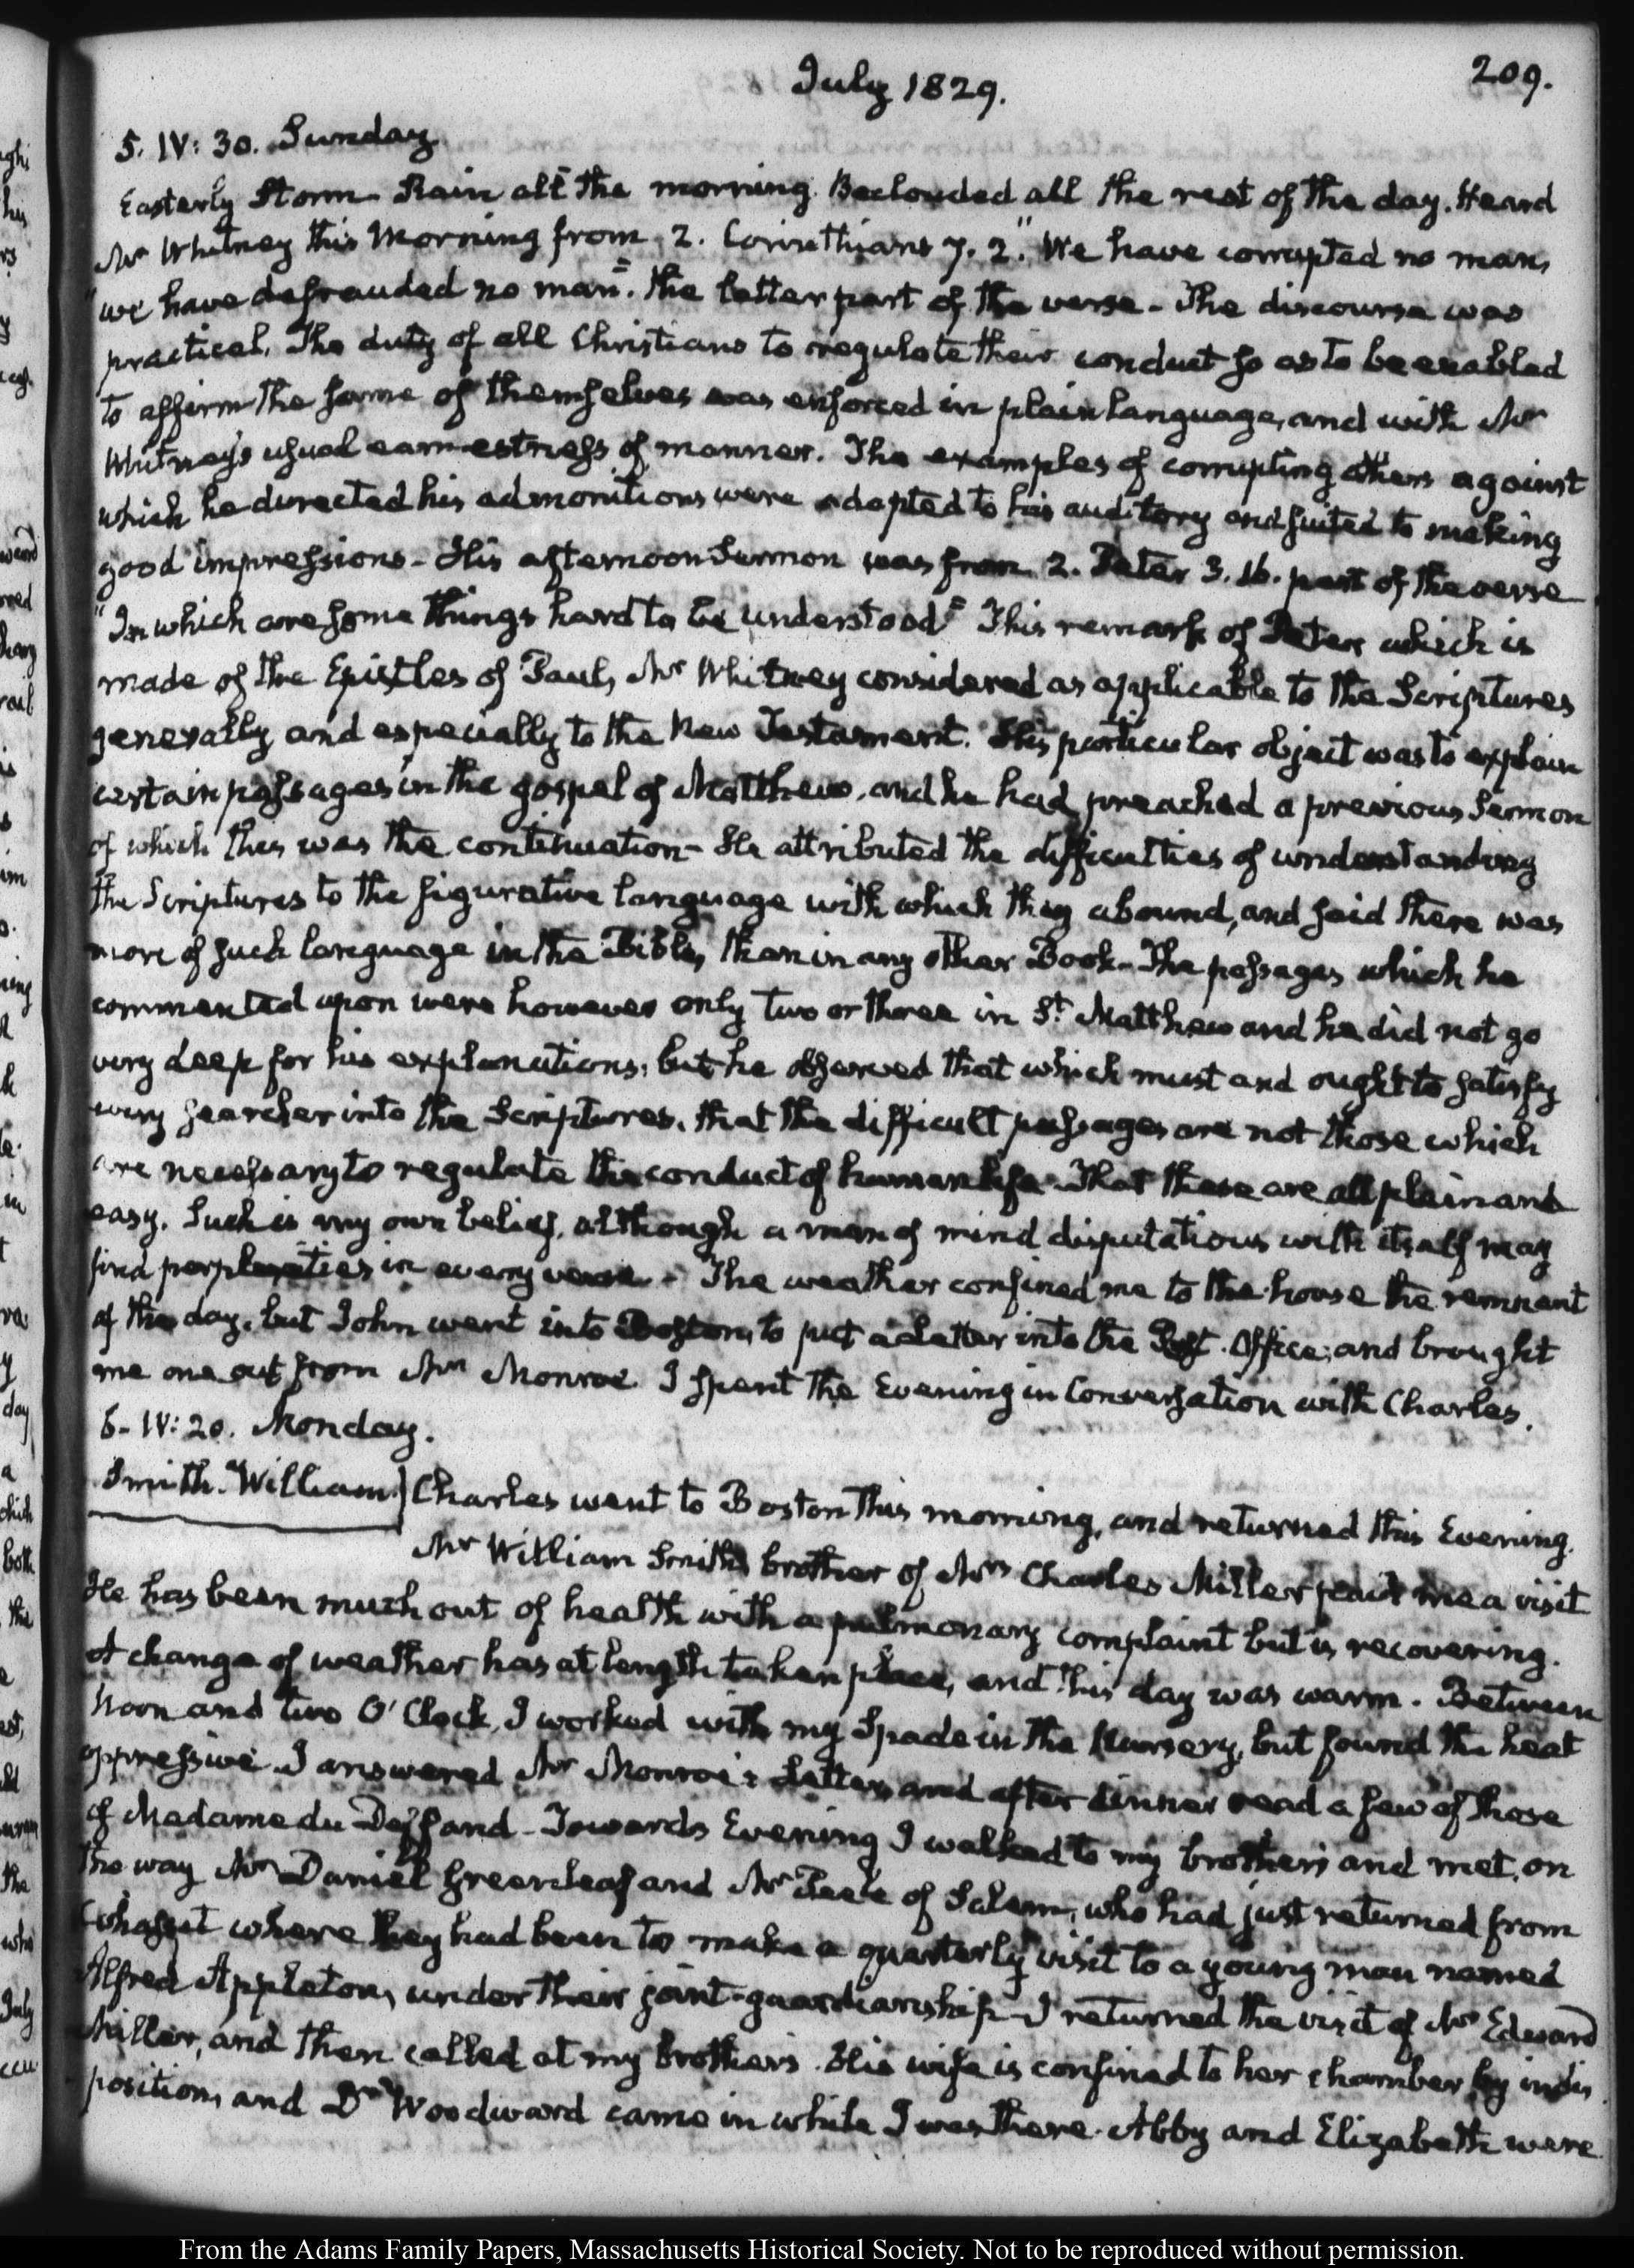 July 1829.
209.
5. IV: 30. Sunday
Easterly Storm - Rain all the morning. Beclouded all the rest of the day. Heard
Mr Whitney this Morning from 2. Corinthians 7. 2. "We have corrupted no man,
"we have defrauded no man". the latter part of the verse - The discourse was
practical. The duty of all Christians to regulate their conduct so as to be enabled
to affirm the same of themselves was enforced in plain language, and with Mr
Whitney's usual earnestness of manner. The examples of corrupting others against
which he directed his admonitions were adapted to his auditory and suited to making
good impressions - His afternoon Sermon was from 2. Peter 3. 16. part of the verse
"In which are some things hard to be understood" This remark of Peter which is
made of the Epistles of Paul, Mr Whitney considered as applicable to the Scriptures
generally and especially to the New Testament. His particular object was to explain
certain passages in the gospel of Matthew, and he had preached a previous Sermon
of which this was the continuation - He attributed the difficulties of understanding
the Scriptures to the figurative language with which they abound, and said there was
more of such language in the Bible, than in any other Book - The passages which he
commented upon were however only two or three in St. Matthew and he did not go
very deep for his explanations; but he observed that which must and ought to satisfy
every searcher into the Scriptures, that the difficult passages are not those which
are necessary to regulate the conduct of human life - That these are all plain and
easy. Such is my own belief, although a man of mind disputatious with itself may
find perplexities in every verse - The weather confined me to the house the remnant
of the day, but John went into Boston, to put a Letter into the Post-Office; and brought
me one out from Mr Monroe. I spent the Evening in Conversation with Charles.
6- IV: 20. Monday.
Smith. William.] Charles went to Boston this morning, and returned this Evening.
Mr William Smith, brother of Mrs Charles Miller paid me a visit
He has been much out of health with a pulmonary complaint but is recovering.
A change of weather has at length taken place, and this day was warm. Between
Noon and two O'Clock, I worked with my Spade in the Nursery, but found the heat
oppressive. I answered Mr Monroe's Letter, and after dinner read a few of those
of Madame du Deffand - Towards Evening I walked to my brother's and met, on
the way Mr Daniel Greenleaf and Mr Peele of Salem, who had just returned from
Cohasset where they had been to make a quarterly visit to a young man named
Alfred Appleton, under their joint-guardianship - I returned the visit of Mr Edward
Miller, and then called at my brother's. His wife is confined to her chamber by indis
position, and Dr Woodward came in while I was there. Abby and Elizabeth were
From the Adams Family Papers, Massachusetts Historical Society. Not to be reproduced without permission.